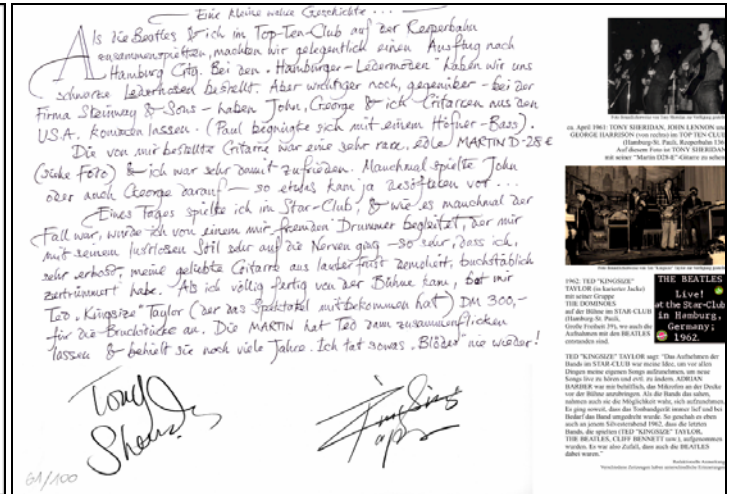 Eine kleine wahre Geschichte ...
Als die Beatles & ich im Top-Ten-Club auf der Reeperbahn
zusammenspielten, machten wir gelegentlich einen Ausflug nach
Hamburg City. Bei den "Hamburger-Ledermoden" haben wir uns
schwarze Lederhosen bestellt. Aber wichtiger noch, gegenüber - bei der
Firma Steinway & Sons - haben John, George & ich Gitarren aus den
U.S.A. kommen lassen. (Paul begnügte sich mit einem Höfner-Bass).
Die von mir bestellte Gitarre war eine sehr rare, edle MARTIN D-28 E
(siehe FOTO) & ich war sehr damit zufrieden. Manchmal spielte John
oder auch George darauf - so etwas kam ja des öfteren vor ...
Eines Tages spielte ich im Star-Club, & wie es manchmal der
Fall war, wurde ich von einem mir fremden Drummer begleitet, der mir
mit seinem lustlosen Stil sehr auf die Nerven ging - so sehr, dass ich,
sehr erbost, meine geliebte Gitarre aus lauter Frust demoliert, buchstäblich
zertrümmert habe. Als ich völlig fertig von der Bühne kam, bot mir
Ted "Kingsize" Taylor (der das Spektakel mitbekommen hat) DM 300,-
für die Bruchstücke an. Die MARTIN hat Ted dann zusammenflicken
lassen & behielt sie noch viele Jahre. Ich tat sowas "Blödes" nie wieder!
Tony
Sheridan
KingSize
Taylor
61/100
ca. April 1961: TONY SHERIDAN, JOHN LENNON und
GEORGE HARRISON (von rechts) im TOP TEN CLUB
(Hamburg-St. Pauli, Reeperbahn 136)
Auf diesem Foto ist TONY SHERIDAN
mit seiner "Martin D28-E"-Gitarre zu sehen
1962: TED "KINGSIZE"
TAYLOR (in karierter Jacke)
mit seiner Gruppe
THE DOMINOES
auf der Bühne im STAR-CLUB
(Hamburg-St. Pauli,
Große Freiheit 39), wo auch die
Aufnahmen mit den BEATLES
entstanden sind.
THE BEATLES
Live!
at the Star-Club
in Hamburg,
Germany;
1962.
TED "KINGSIZE" TAYLOR sagt: "Das Aufnehmen der
Bands im STAR-CLUB war meine Idee, um vor allen
Dingen meine eigenen Songs aufzunehmen, um neue
Songs live zu hören und evtl. zu ändern. ADRIAN
BARBER war mir behilflich, das Mikrofon an der Decke
vor der Bühne anzubringen. Als die Bands das sahen,
nahmen auch sie die Möglichkeit wahr, sich aufzunehmen.
Es ging soweit, dass das Tonbandgerät immer lief und bei
Bedarf das Band umgedreht wurde. So geschah es eben
auch an jenem Silvesterabend 1962, dass die letzten
Bands, die spielten (TED "KINGSIZE" TAYLOR,
THE BEATLES, CLIFF BENNETT usw.), aufgenommen
wurden. Es war also Zufall, dass auch die BEATLES
dabei waren."
Redaktionelle Anmerkung:
Verschiedene Zeitzeugen haben unterschiedliche Erinnerungen